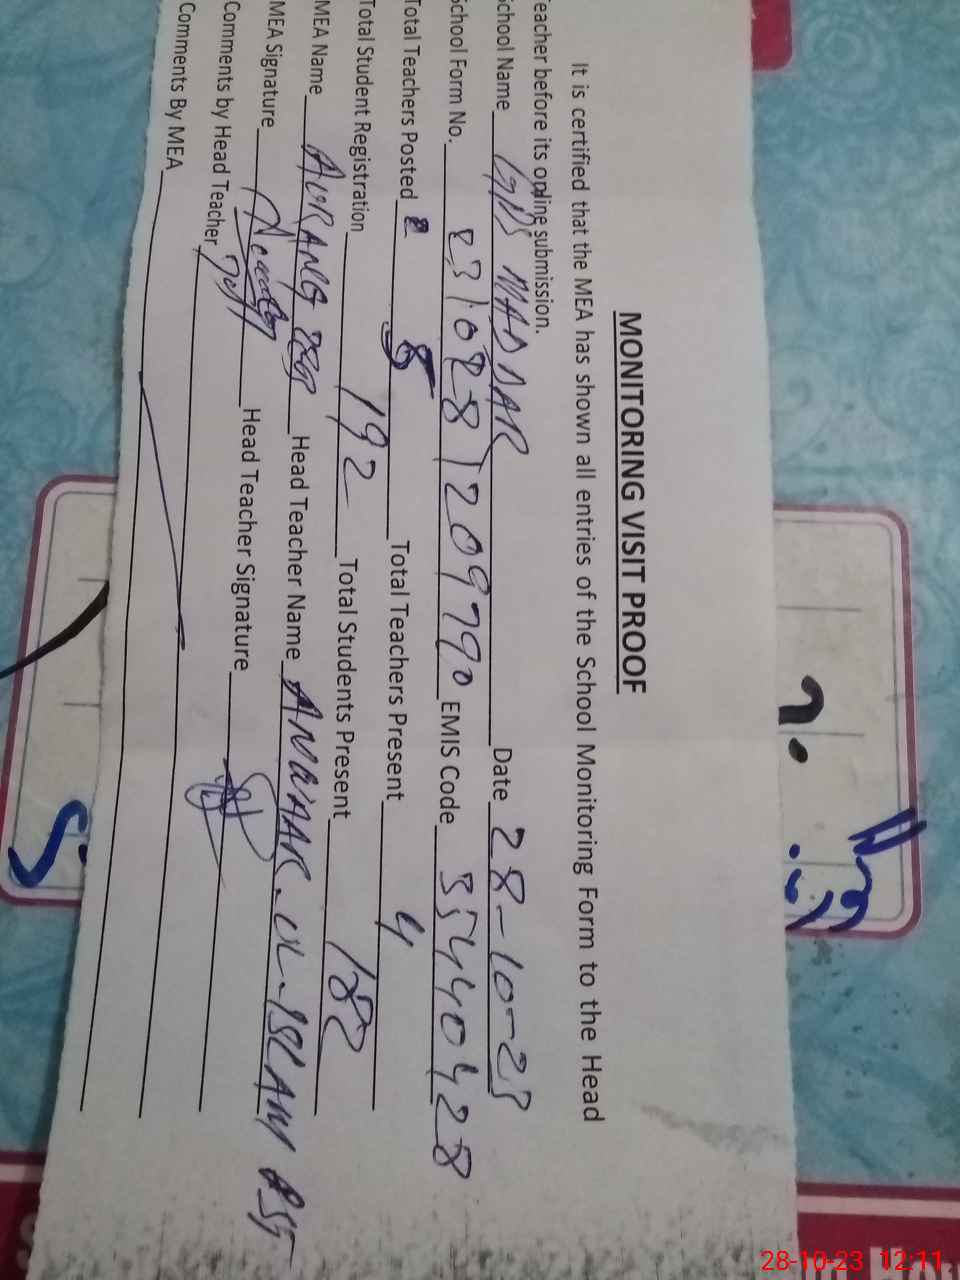 MONITORING VISIT PROOF
It is certified that the MEA has shown all entries of the School Monitoring Form to the Head
eacher before its online submission.
School Name MADDAR Date 28-10-23
School Form No. EMIS Code 35440428
Total Teachers Posted 5 Total Teachers Present 4
Total Student Registration 192 Total Students Present 182
MEA Name AURANG ZEB Head Teacher Name ANWAAR-UL-ISLAM PST
MEA Signature Head Teacher Signature
Comments by Head Teacher
Comments By MEA
28-10-23 12:11